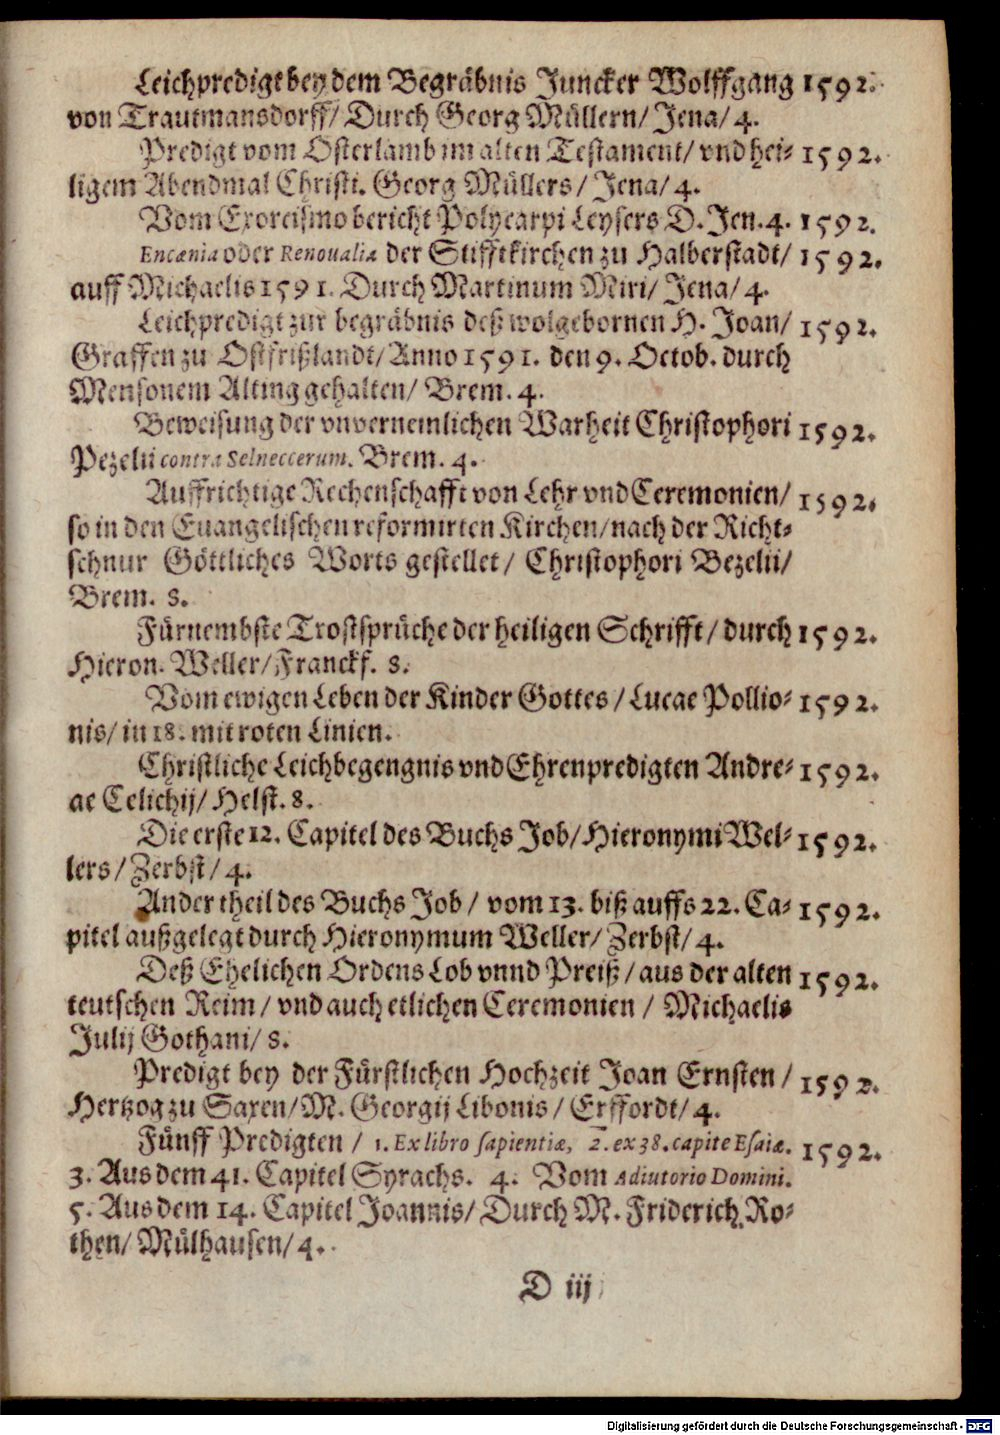 Leichpredigt bey dem Begräbnis Juncker Wolffgang 1592.
von Trautmansdorff/ Durch Georg Müllern/ Jena/ 4.
Predigt vom Osterlamb im alten Testament/ vnd hei- 1592.
ligem Abendmal Christi. Georg Müllers/ Jena/ 4.
Vom Exorcismo bericht Polycarpi Leysers D. Jen. 4. 1592.
Encænia oder Renoualia der Stifftkirchen zu Halberstadt/ 1592.
auff Michaelis 1591. Durch Martinum Miri/ Jena/ 4.
Leichpredigt zur begräbnis deß wolgebornen H. Joan/ 1592.
Graffen zu Ostfrißlandt/ Anno 1591. den 9. Octob. durch
Mensonem Alting gehalten/ Brem. 4.
Beweisung der vnverneinlichen Warheit Christophori 1592.
Pezelii contra Selneccerum. Brem. 4.
Auffrichtige Rechenschafft von Lehr vnd Ceremonien/ 1592.
so in den Euangelischen reformirten Kirchen/ nach der Richt-
schnur Göttliches Worts gestellet/ Christophori Bezelii/
Brem. 8.
Fürnembste Trostsprüche der heiligen Schrifft/ durch 1592.
Hieron. Weller/ Franckf. 8.
Vom ewigen Leben der Kinder Gottes/ Lucae Pollio- 1592.
nis/ in 18. mit roten Linien.
Christliche Leichbegengnis vnd Ehrenpredigten Andre- 1592.
ae Celichij/ Helst. 8.
Die erste 12. Capitel des Buchs Job/ Hieronymi Wel- 1592.
lers/ Zerbst/ 4.
Ander theil des Buchs Job/ vom 13. biß auffs 22. Ca- 1592.
pitel außgelegt durch Hieronymum Weller/ Zerbst/ 4.
Deß Ehelichen Ordens Lob vnnd Preiß/ aus der alten 1592.
teutschen Reim/ vnd auch etlichen Ceremonien/ Michaelis
Julij Gothani/ 8.
Predigt bey der Fürstlichen Hochzeit Joan Ernsten/ 1592.
Hertzog zu Saxen/ M. Georgij Libonis/ Erffordt/ 4.
Fünff Predigten/ 1. Ex libro sapientiæ, 2. ex 38. capite Esaiæ. 1592.
3. Aus dem 41. Capitel Syrachs. 4. Vom Adiutorio Domini.
5. Aus dem 14. Capitel Joannis/ Durch M. Friderich Ro-
then/ Mülhausen/ 4.
D iij
Digitalisierung gefördert durch die Deutsche Forschungsgemeinschaft - DFG